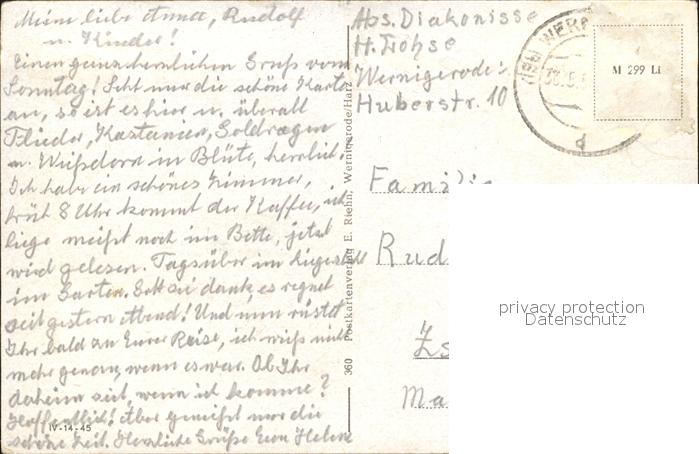 Meine liebe Anna, Rudolf
u. Kinder!
Einen ganz herzlichen Gruß vom
Sonntag! Seht nur die schöne Karte
an, so ist es hier u. überall
Flieder, Kastanien, Goldregen
u. Weißdorn in Blüte, herrlich.
Ich habe ein schönes Zimmer,
früh 8 Uhr kommt der Kaffee, ich
liege meißt noch im Bette, jetzt
wird gelesen. Tagsüber im Liegestuhl
im Garten. Gott sei dank, es regnet
seit gestern Abend! Und nun rüstet
Ihr bald zu Eurer Reise, ich weiß nicht
mehr genau, wenn es war. Ob Ihr
daheim seit, wenn ich komme?
Hoffentlich! Aber genießt nur die
schöne Zeit. Herzliche Grüße Eure Helene
IV-14-45
360 Postkartenverlag E. Riehn, Wernigerode/Harz
Abs. Diakonisse
H. Lohse
Wernigerode
Huberstr. 10
M 299 Li
Familie
Rud
Zs
Ma
privacy protection
Datenschutz